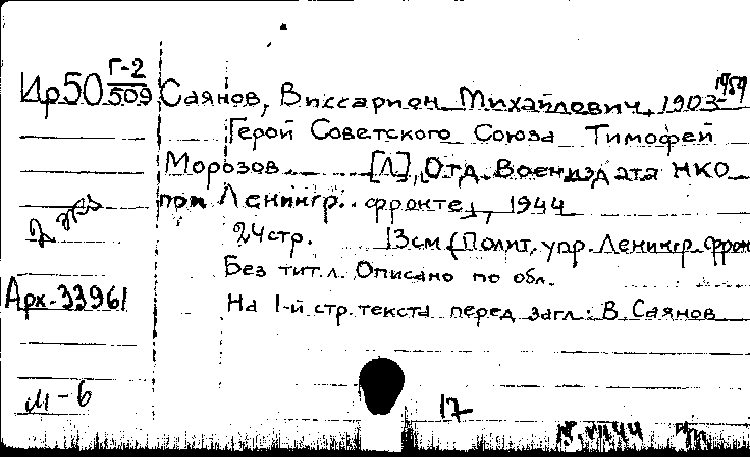 Ир50 Г-2/509 Саянов, Виссарион Михайлович, 1903-1959
Герой Советского Союза Тимофей
Морозов [Л], Отд. Воениздата НКО
при Ленингр. фронте, 1944
2 экз
24стр. 13см (Полит. упр. Ленингр. фрон
Без тит.л. Описано по обл.
Арх-33961
На 1-й стр. текста перед загл.: В. Саянов
М-6
17